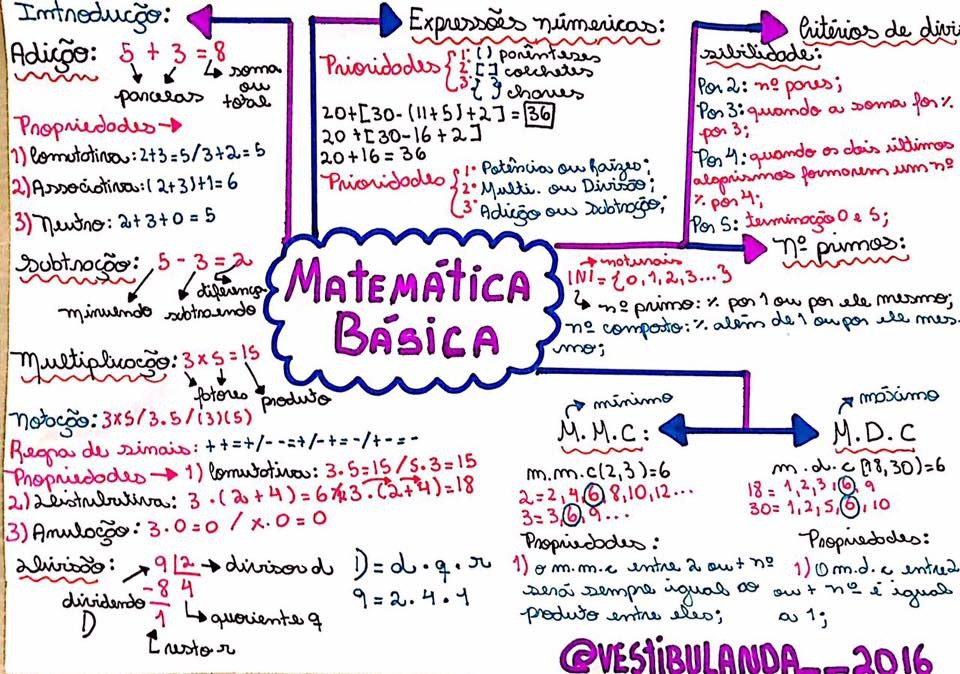 Introdução:
Adição: 5 + 3 = 8
parcelas
soma
ou
total
Propriedades →
1) Comutativa: 2+3=5/3+2=5
2) Associativa: (2+3)+1=6
3) Neutro: 2+3+0=5
Subtração: 5 - 3 = 2
minuendo
subtraendo
diferença
Multiplicação: 3 x 5 = 15
fatores
produto
Notação: 3x5/3.5/(3)(5)
Regra de sinais: ++=+/--=+/-+=-/+-=-
Propriedades → 1) Comutativa: 3.5=15/5.3=15
2) Distributiva: 3.(2+4)=6
3.(2+4)=18
3) Anulação: 3.0=0 / x.0=0
Divisão:
9 2 → divisor d
-8 4
1
dividendo
D
quociente q
resto r
D = d . q . r
9 = 2 . 4 . 1
Expressões númericas:
Prioridades
1º ( ) parênteses
2º [ ] colchetes
3º { } chaves
20+[30-(11+5)+2]=36
20+[30-16+2]
20+16=36
Prioridades
1º Potências ou Raízes;
2º Multi. ou Divisão;
3º Adição ou Subtração;
MATEMÁTICA
BÁSICA
Critérios de divi
sibilidade:
Por 2: nº pares;
Por 3: quando a soma for %
por 3;
Por 4: quando os dois últimos
algarismos formarem um nº
% por 4;
Por 5: terminação 0 e 5;
Nº primos:
naturais
|N| = {0,1,2,3...}
nº primo: % por 1 ou por ele mesmo;
nº composto: % além de 1 ou por ele mes-
mo;
mínimo
M.M.C:
m.m.c(2,3)=6
2=2,4,6,8,10,12...
3=3,6,9...
Propriedades:
1) o m.m.c entre 2 ou + nº
será sempre igual ao
produto entre eles;
máximo
M.D.C
m.d.c(18,30)=6
18=1,2,3,6,9
30=1,2,5,6,10
Propriedades:
1) O m.d.c entre 2
ou + nº é igual
a 1;
@VESTIBULANDA__2016